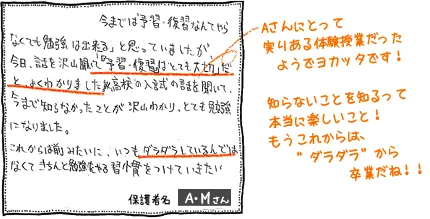 今までは「予習・復習なんてやら
なくても勉強は出来る」と思っていましたが
今日、話を沢山聞いて『予習・復習』はとても大切だ
と、よくわかりました。高校の入試の話を聞いて、
今まで知らなかったことが沢山わかり、とても勉強
になりました。
これからは前みたいに、いつもダラダラしているんでは
なくてきちんと勉強をやる習慣をつけていきたい
保護者名 A・Mさん
Aさんにとって
実りある体験授業だった
ようでヨカッタです!
知らないことを知るって
本当に楽しいこと!
もうこれからは、
"ダラダラ"から
卒業だね!!